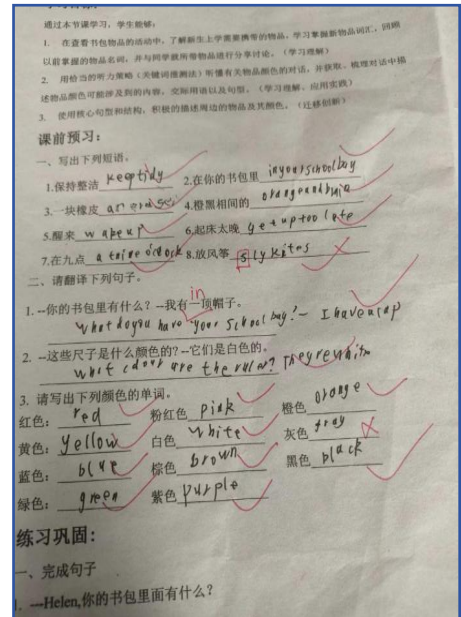 通过本节课学习，学生能够：
1. 在查看书包物品的活动中，了解新生上学需要携带的物品，学习掌握新物品词汇，回顾
以前掌握的物品名词，并与同学就所带物品进行分享讨论。（学习理解）
2. 用恰当的听力策略（关键词推测法）听懂有关物品颜色的对话，并获取、梳理对话中描
述物品颜色可能涉及到的内容、交际用语以及句型。（学习理解、应用实践）
3. 使用核心句型和结构，积极的描述周边的物品及其颜色。（迁移创新）
课前预习：
一、写出下列短语。
1.保持整洁 keeptidy 2.在你的书包里 inyourschoolbag
3.一块橡皮 4.橙黑相间的
5.醒来 wakeup 6.起床太晚 getuptoolate
7.在九点 8.放风筝 slykites
二、请翻译下列句子。
1. --你的书包里有什么？--我有一顶帽子。
in
What doyou have your schoolbag? - I haveacap
2. --这些尺子是什么颜色的?--它们是白色的。
are the ruler?
3. 请写出下列颜色的单词。
红色: red 粉红色 pink 橙色 orange
黄色: yellow 白色 white 灰色 gray
蓝色: blue 棕色 brown 黑色 black
绿色: green 紫色 purple
练习巩固:
一、完成句子
1. ---Helen,你的书包里面有什么？